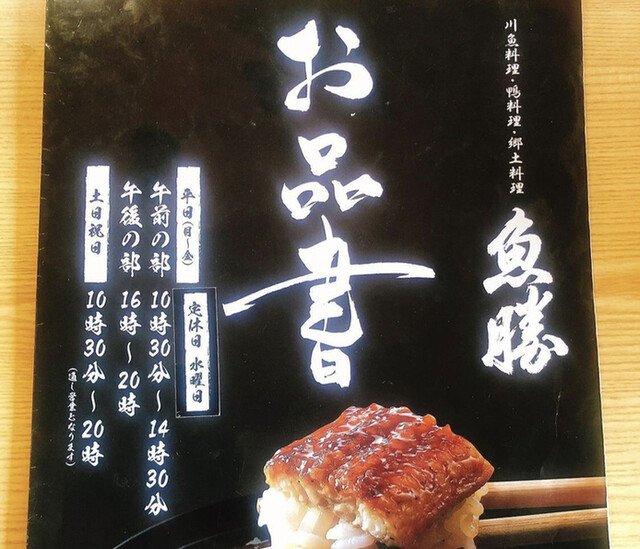 川魚料理・鴨料理・郷土料理
魚勝
お品書
平日(月〜金)
定休日 水曜日
午前の部 10時30分〜14時30分
午後の部 16時〜20時
土日祝日
10時30分〜20時
(通し営業となります)